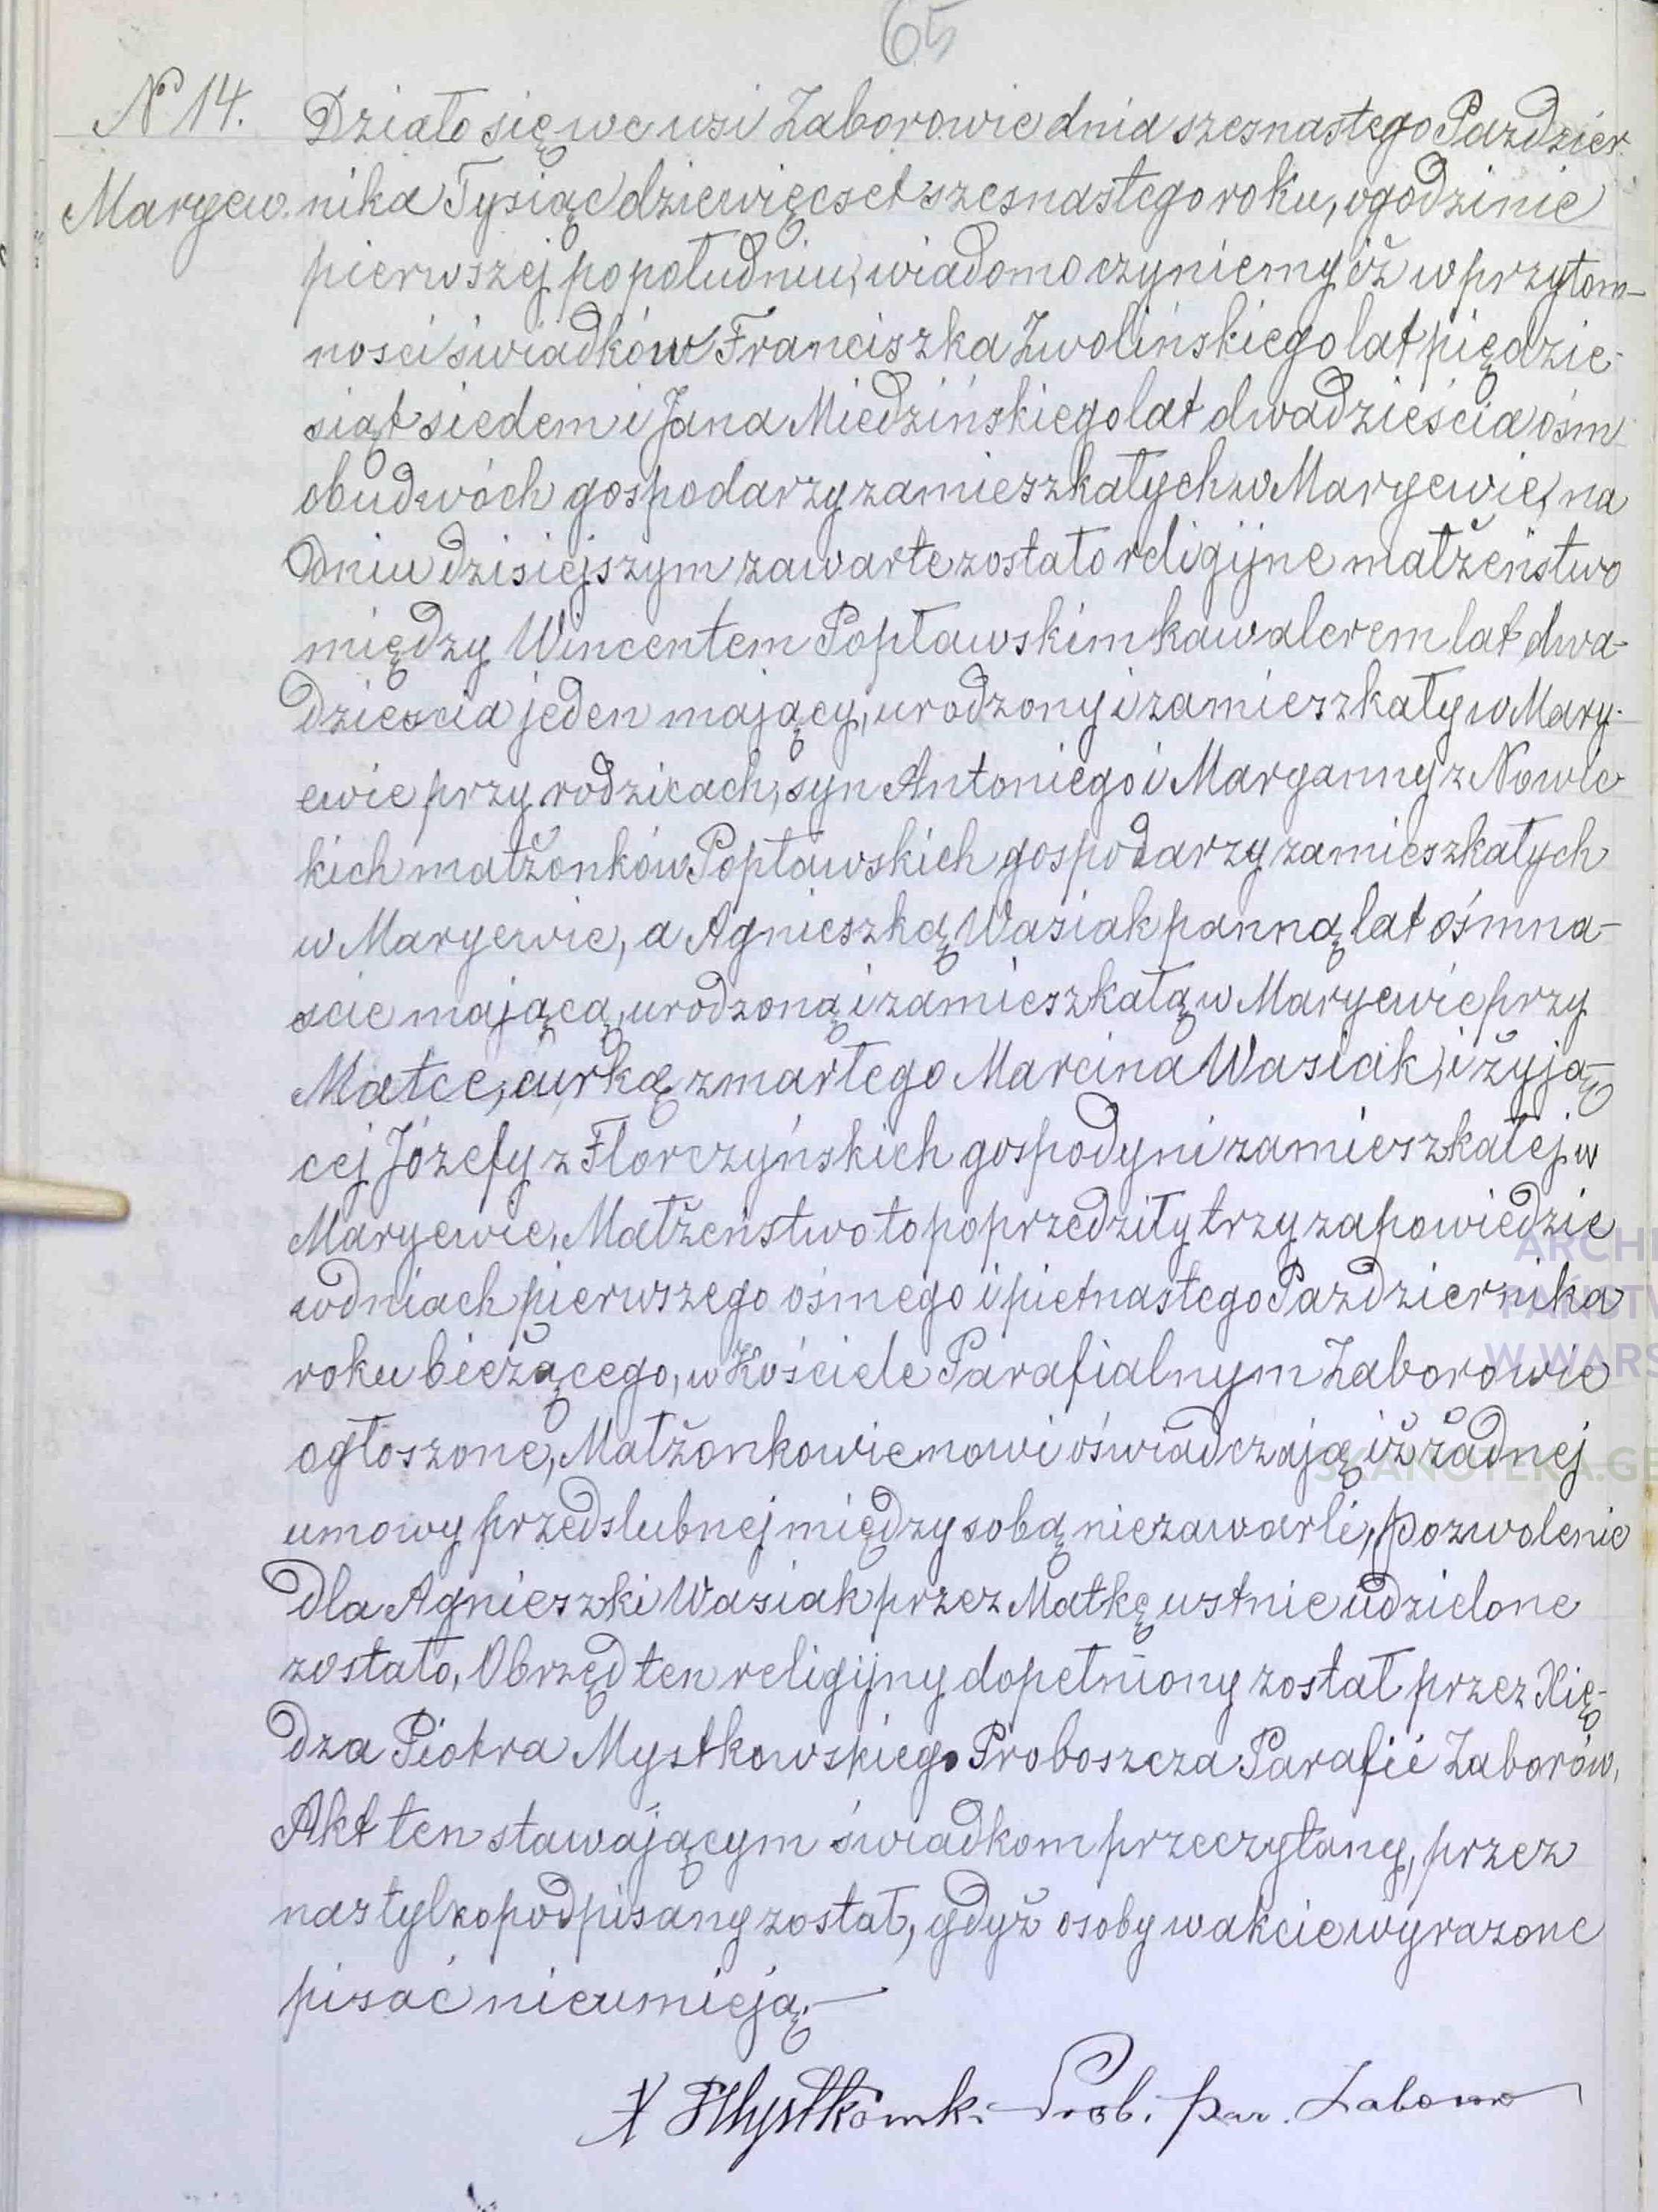 65
N 14.
Maryew.
Działo się we wsi Zaborowie dnia szesnastego Paździer
nika Tysiąc dziewięcset szesnastego roku, o godzinie
pierwszej po południu, wiadomo czyniemy iż w przytom-
nosci świadków Franciszka Zwolińskiego lat piędzie-
siąt siedem i Jana Miedzińskiego lat dwadzieścia ośm
obudwóch gospodarzy zamieszkałych w Maryewie, na
dniu dzisiejszym zawarte zostało religijne małżeństwo
między Wincentem Popławskim kawalerem lat dwa-
dziescia jeden mający, urodzony i zamieszkały w Mary-
ewie przy rodzicach, syn Antoniego i Maryanny z Nowic
kich małżonków Popławskich gospodarzy zamieszkałych
w Maryewie, a Agnieszką Wasiak panną lat ośmna-
scie mającą, urodzoną i zamieszkałą w Maryewie przy
Matce, curką zmarłego Marcina Wasiak, i żyją-
cej Józefy z Florczyńskich gospodyni zamieszkałej w
Maryewie, Małżeństwo to poprzedziły trzy zapowiedzie
w dniach pierwszego osmego i pietnastego Pazdziernika
roku bieżącego, w Kościele Parafialnym Zaborowie
ogłoszone, Małżonkowie nowi oświadczają iż żadnej
umowy przedslubnej między sobą niezawarli, pozwolenie
dla Agnieszki Wasiak przez Matkę ustnie udzielone
zostało, Obrzęd ten religijny dopełniony został przez Xię-
dza Piotra Mystkowskiego Proboszcza Parafii Zaborów,
Akt ten stawającym świadkom przeczytany, przez
nas tylko podpisany został, gdyż osoby w akcie wyrazone
pisać nieumieją.
X PMystkowski Prob. par. Zaborow
ARCHI
PAŃSTW
W WARS
SKANOTEKA.GE